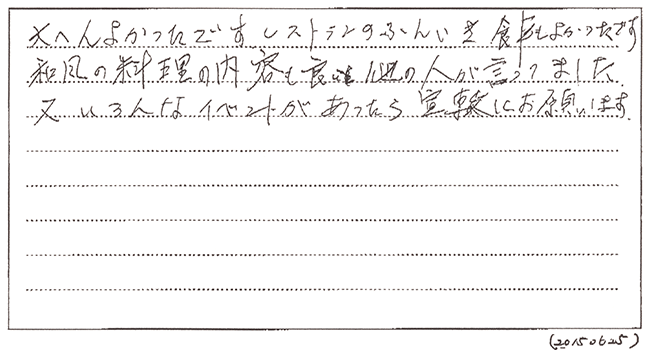 大へんよかったですレストランのふんいき食事もよかったです
和風の料理の内容も良いと他の人が言ってました
又いろんなイベントがあったら宜敷くお願いします
(20150625)